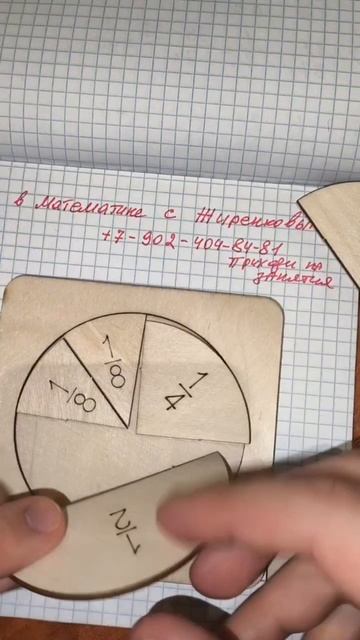 в математике с Жиренковы
+7-902-404-84-81
Приходи на
занятия
1/8
1/8
1/4
1/2